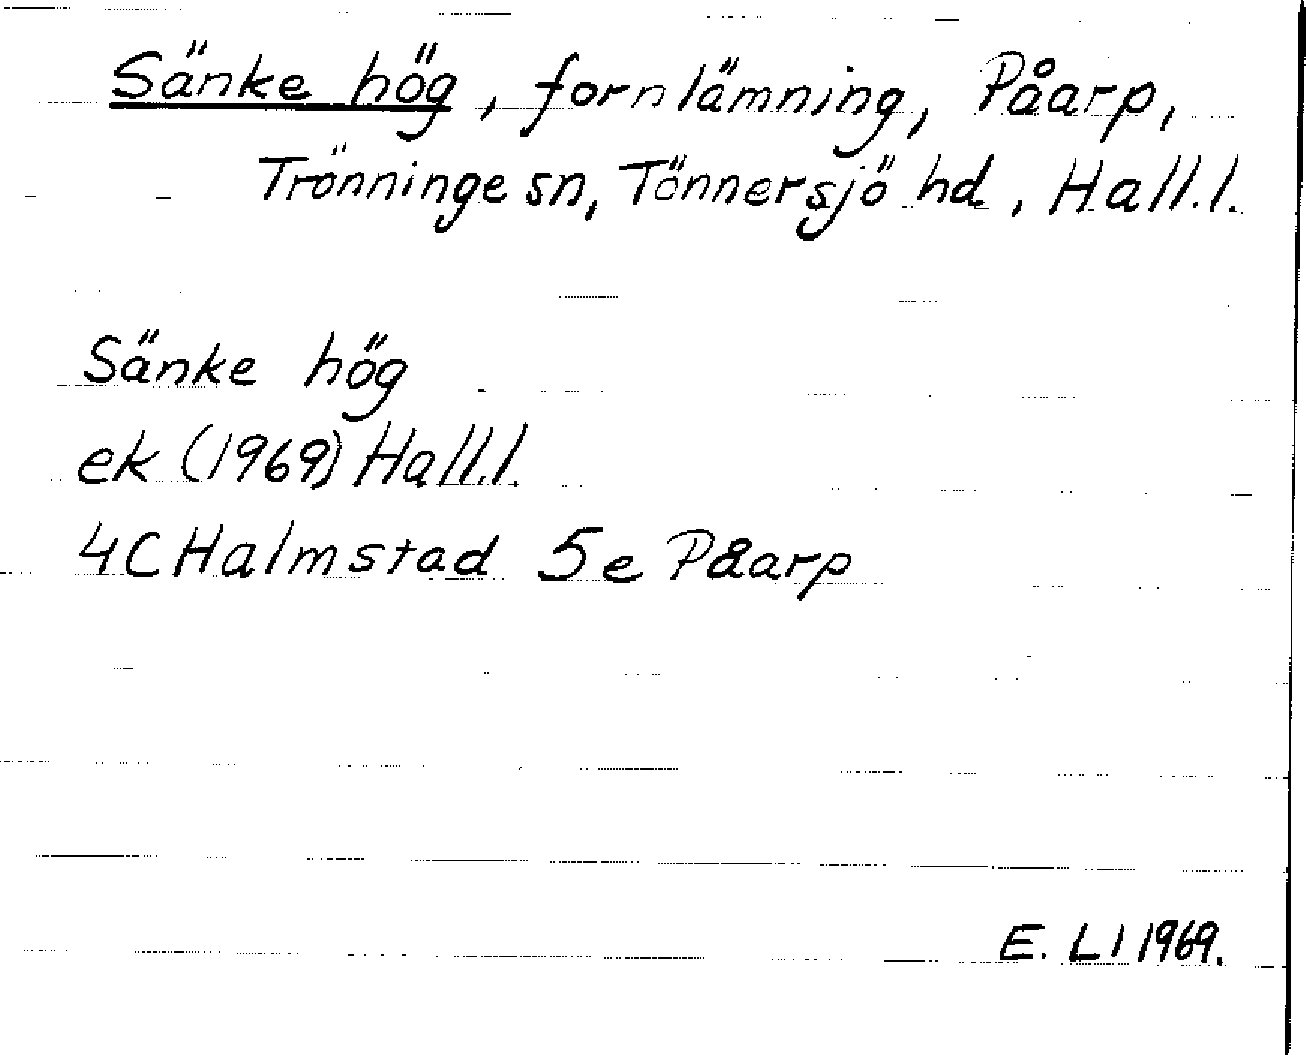 Sänke hög, fornlämning, Påarp,
Trönninge sn, Tönnersjö hd., Hall.l.
Sänke hög
ek (1969) Hall.l.
4C Halmstad 5e Påarp
E. Ll 1969.